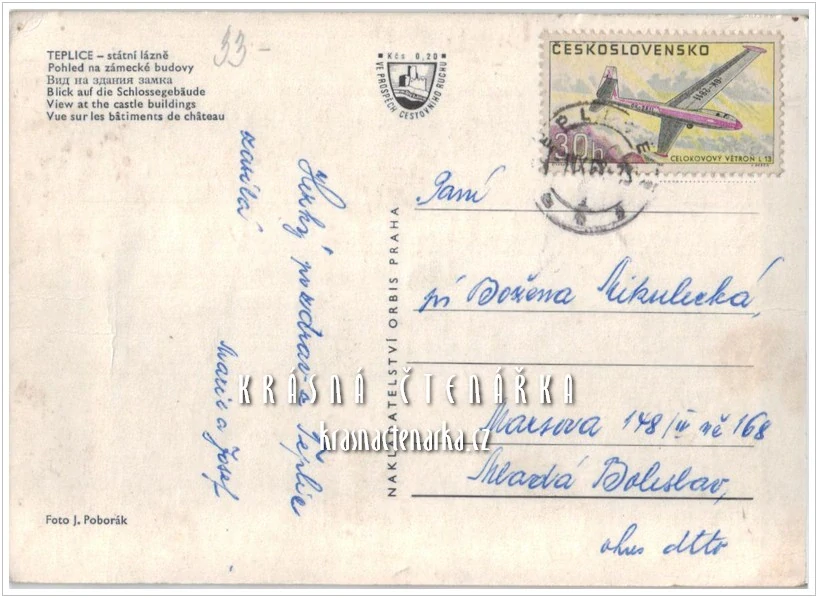 TEPLICE – státní lázně
Pohled na zámecké budovy
Вид на здания замка
Blick auf die Schlossegebäude
View at the castle buildings
Vue sur les bâtiments de château
33-
Kčs 0,20
VE PROSPĚCH CESTOVNÍHO RUCHU
ČESKOSLOVENSKO
OK-3811
30h
CELOKOVOVÝ VĚTROŇ L 13
Hezký pozdrav z Teplic
zasílá
Marie a Josef
NAKLADATELSTVÍ ORBIS PRAHA
Paní
Božena Mikulecká,
Marxova 148/III 168
Mladá Boleslav,
okres dtto
KRÁSNÁ ČTENÁŘKA
krasnactenarka.cz
Foto J. Poborák